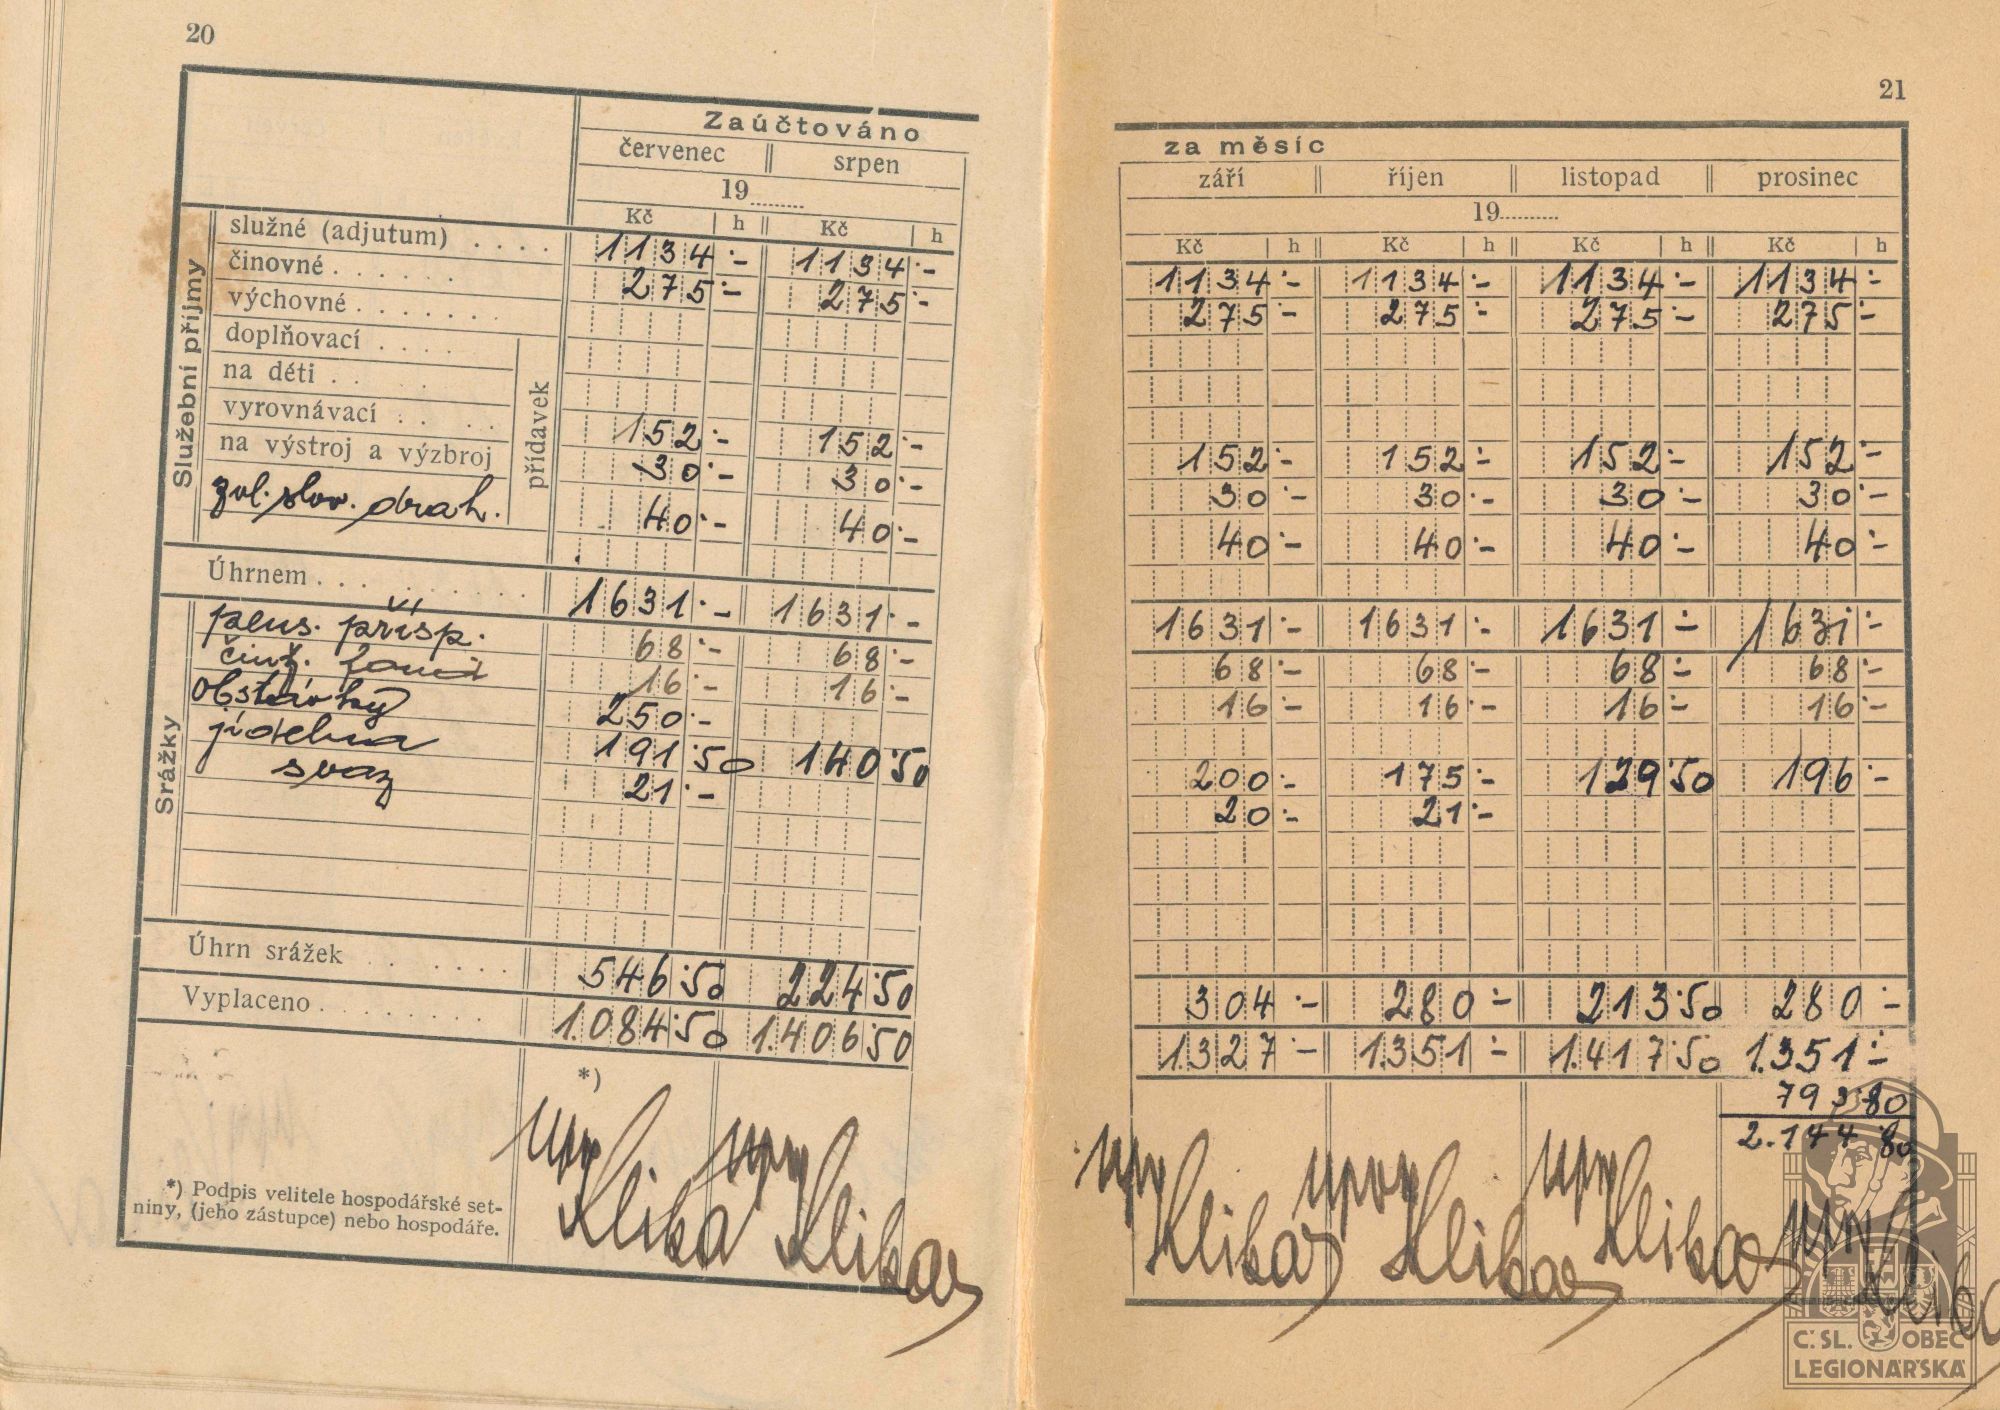 20
Zaúčtováno
červenec srpen
19........
Kč h Kč h
Služební příjmy
služné (adjutum) . . . . 1134·- 1134·-
činovné . . . . . . 275·- 275·-
výchovné . . . . . . .
přídavek
doplňovací . . . .
na děti . . . .
vyrovnávací . . . . 152·- 152·-
na výstroj a výzbroj 30·- 30·-
zvl. slov. drah. 40·- 40·-
Úhrnem . . . . . . . . . 1631·- 1631·-
Srážky
pens. přísp. 68·- 68·-
činž. 16·- 16·-
obstávky 250·-
jídelna 191·50 140·50
svaz 21·-
Úhrn srážek . . . . . . 546·50 224·50
Vyplaceno . . . . . . . . 1.084·50 1.406·50
*)
Klika Klika
*) Podpis velitele hospodářské set-
niny, (jeho zástupce) nebo hospodáře.
21
za měsíc
září říjen listopad prosinec
19..........
Kč h Kč h Kč h Kč h
1134·- 1134·- 1134·- 1134·-
275·- 275·- 275·- 275·-
152·- 152·- 152·- 152·-
30·- 30·- 30·- 30·-
40·- 40·- 40·- 40·-
1631·- 1631·- 1631·- 1631·-
68·- 68·- 68·- 68·-
16·- 16·- 16·- 16·-
200·- 175·- 129·50 196·-
20·- 21·-
304·- 280·- 213·50 280·-
1.327·- 1.351·- 1.417·50 1.351·-
793·80
2.144·80
Klika Klika Klika
Č.SL. OBEC
LEGIONÁŘSKÁ